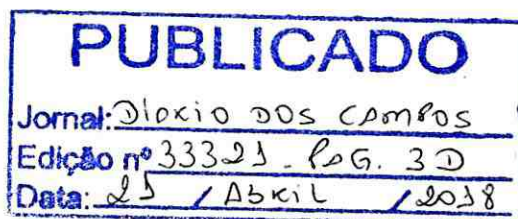 PUBLICADO
Jornal: Diário dos Campos
Edição nº 33321 - Pág. 3D
Data: 21 / Abril / 2018